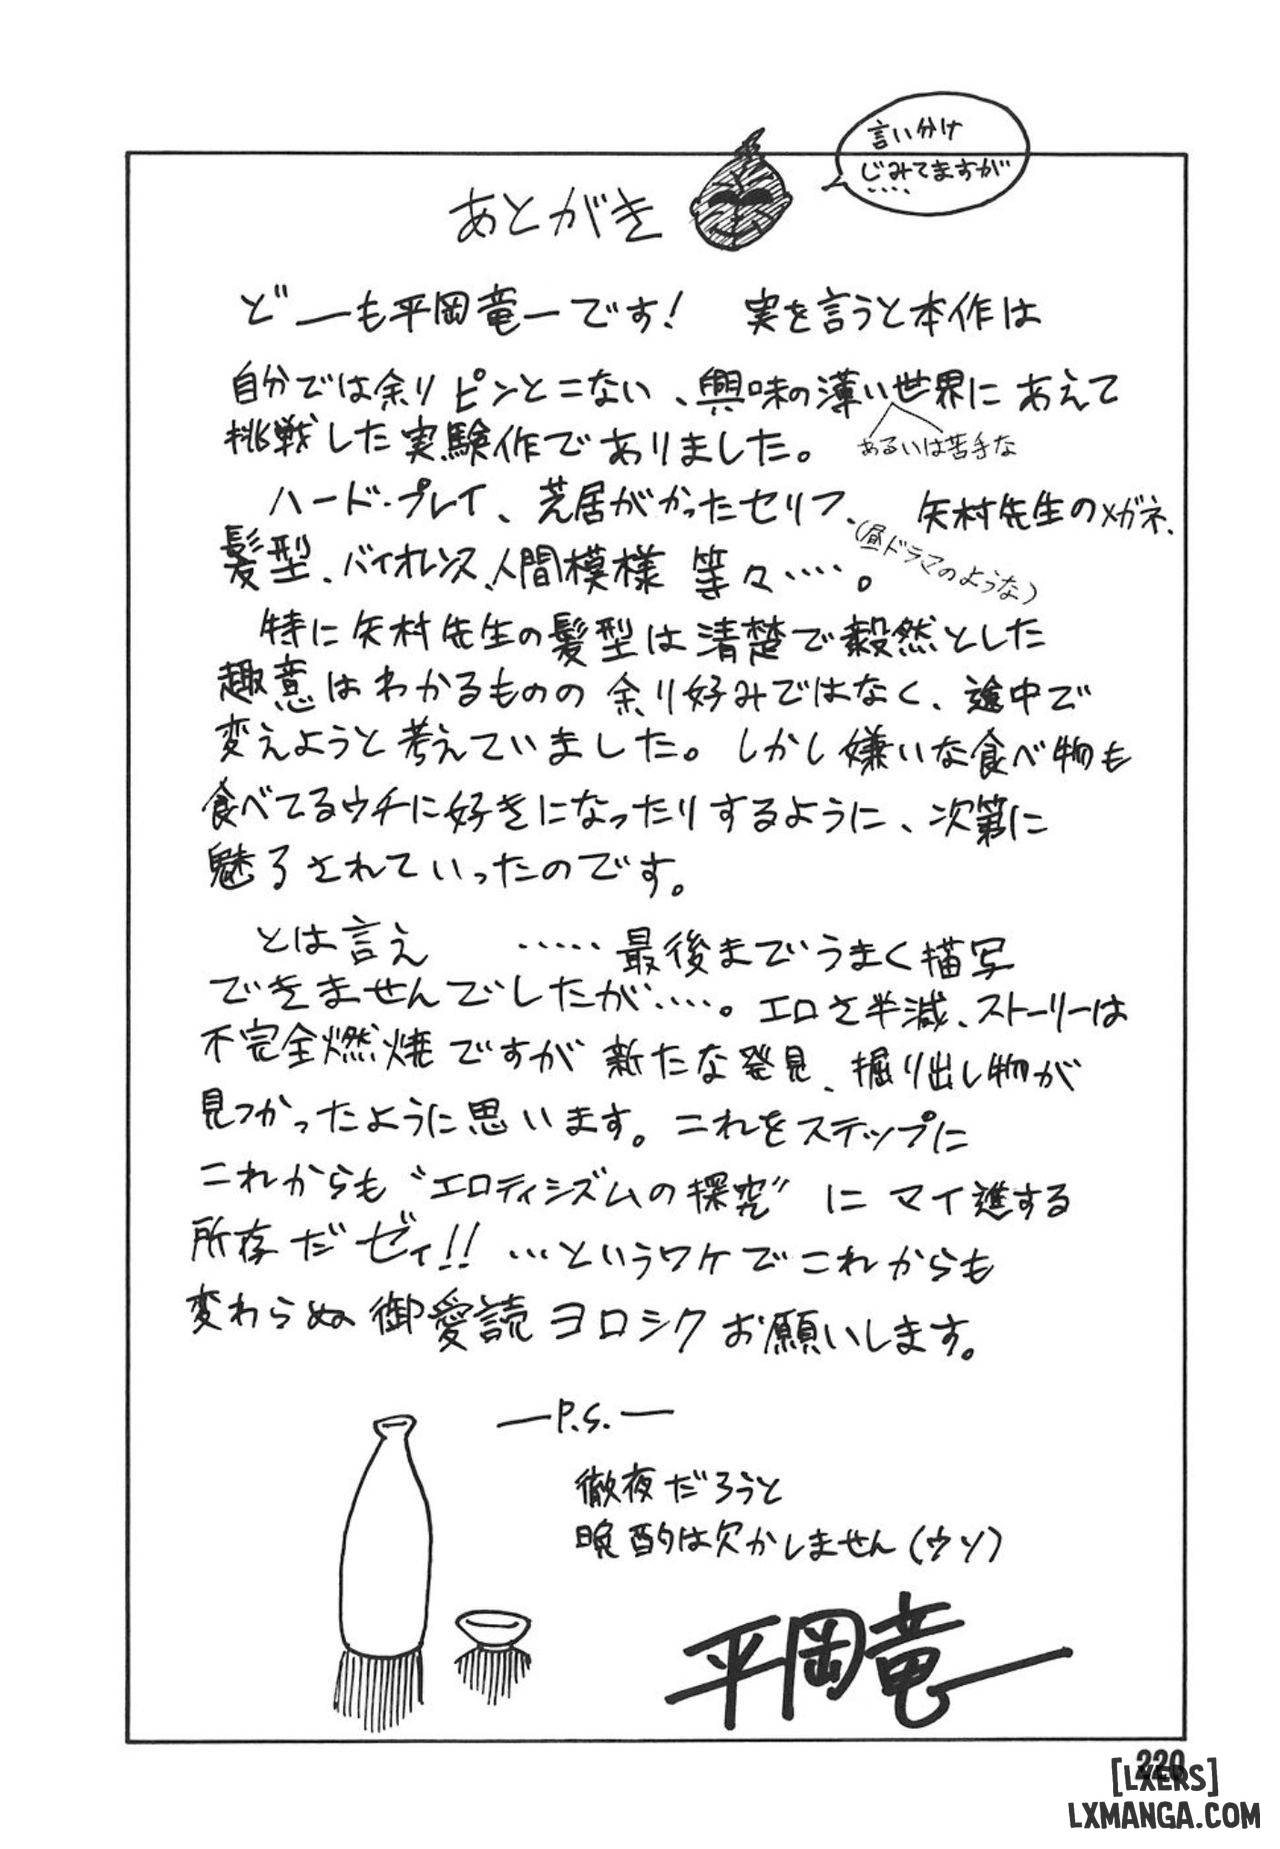 言い分け
じみてますが
‥‥
あとがき
ど──も平岡竜一です! 実を言うと本作は
自分では余りピンとこない、興味の薄い世界にあえて
あるいは苦手な
挑戦した実験作でありました。
ハード・プレイ、芝居がかったセリフ、矢村先生のメガネ、
髪型、バイオレンス、人間模様 等々‥‥。
(昼ドラマのような)
特に矢村先生の髪型は清楚で毅然とした
趣意はわかるものの余り好みではなく、途中で
変えようと考えていました。しかし嫌いな食べ物も
食べてるウチに好きになったりするように、次第に
魅るされていったのです。
とは言え ‥‥‥最後までうまく描写
できませんでしたが‥‥。エロさ半減、ストーリーは
不完全燃焼ですが新たな発見、掘り出し物が
見つかったように思います。これをステップに
これからも“エロティシズムの探究”にマイ進する
所存だゼィ!! …というワケでこれからも
変わらぬ御愛読ヨロシクお願いします。
─P.S.─
徹夜だろうと
晩酌は欠かしません(ウソ)
平岡竜一
220
[LXERS]
LXMANGA.COM